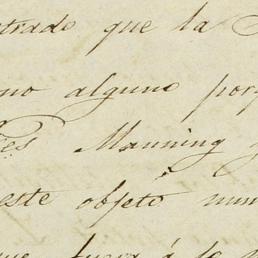 strado que la
no alguno por
es Manning y
este objeto nun
que fuera á la